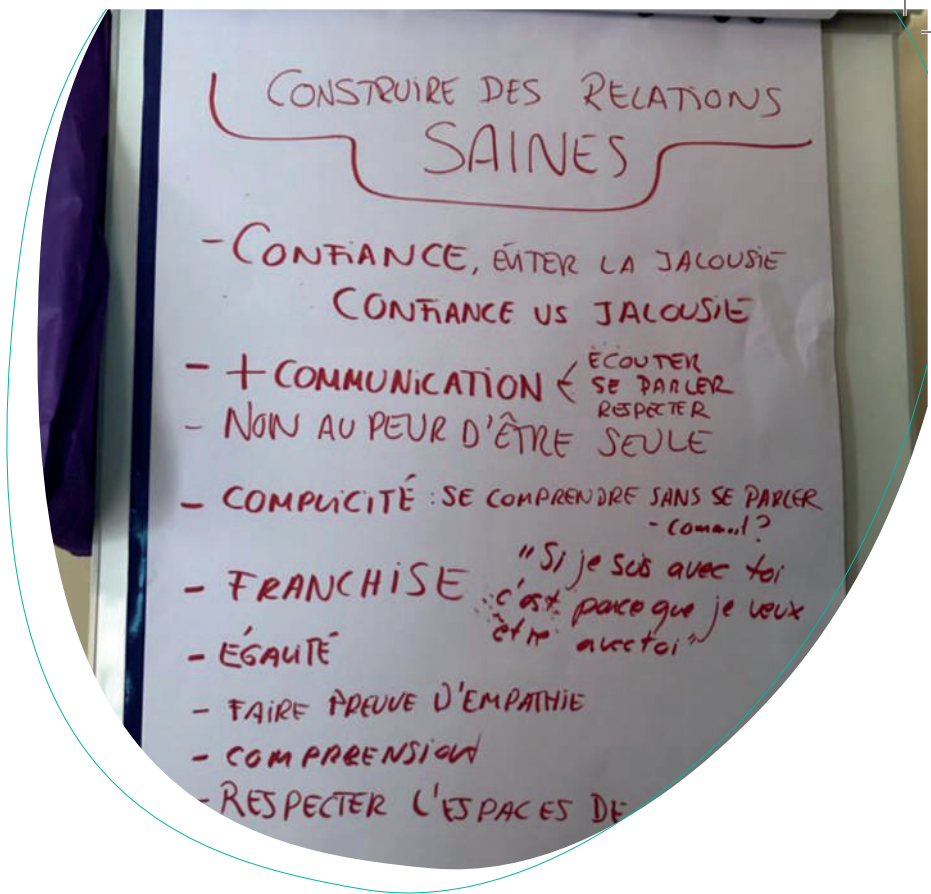 CONSTRUIRE DES RELATIONS
SAINES
- CONFIANCE, ÉVITER LA JALOUSIE
CONFIANCE VS JALOUSIE
- + COMMUNICATION < ÉCOUTER
SE PARLER
RESPECTER
- NON AU PEUR D'ÊTRE SEULE
- COMPLICITÉ : SE COMPRENDRE SANS SE PARLER
- Comment ?
- FRANCHISE : "Si je suis avec toi
c'est parce que je veux
être avec toi"
- ÉGALITÉ
- FAIRE PREUVE D'EMPATHIE
- COMPRENSION
- RESPECTER L'ESPACES DE